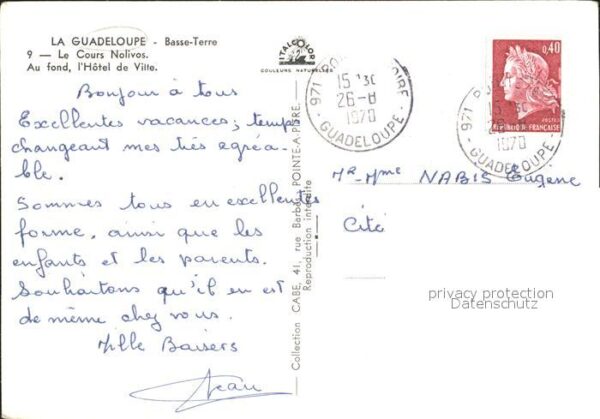 LA GUADELOUPE - Basse-Terre
9 — Le Cours Nolivos.
Au fond, l'Hôtel de Ville.
Bonjour à tous
Excellentes vacances; temps
changeant mes très agréa-
ble.
Sommes tous en excellente
forme, ainsi que les
enfants et les parents.
Souhaitons qu'il en est
de même chez vous.
Mille Baisers
Jean
Collection CABE, 41, rue Barbès, POINTE-A-PITRE
Reproduction interdite
ITALCOLOR
COULEURS NATURELLES
971
15 H 30
26-8
1970
GUADELOUPE
0,40
POSTES
REPUBLIQUE FRANÇAISE
971
15 H 30
26
1970
GUADELOUPE
Mr-Mme NABIS Eugène
Cité
privacy protection
Datenschutz